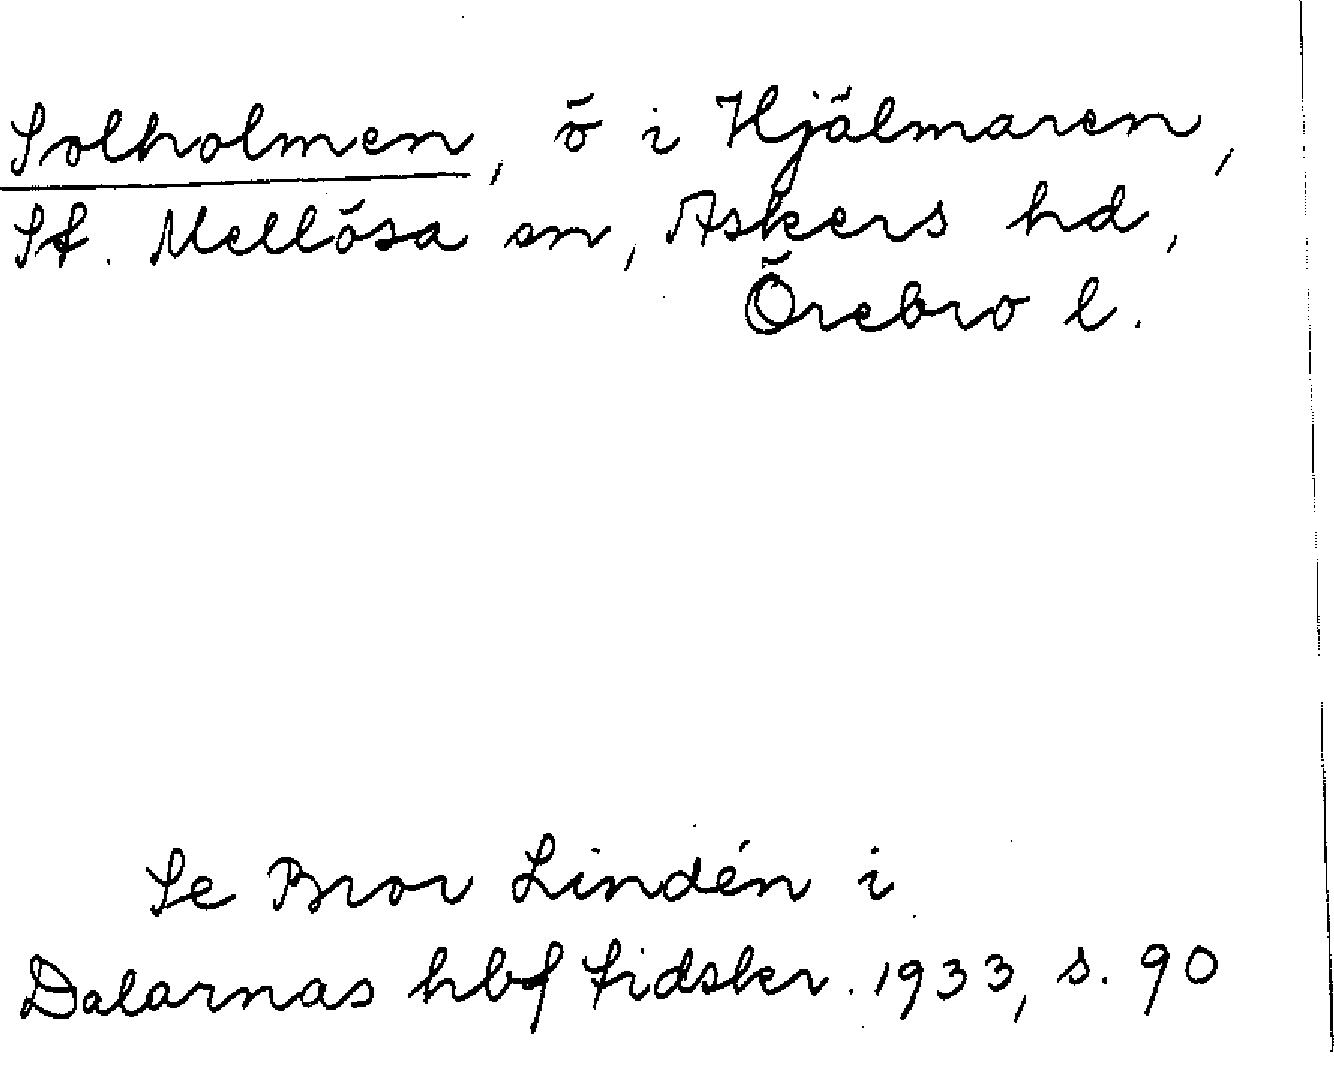 Solholmen, ö i Hjälmaren,
St. Mellösa sn, Askers hd,
Örebro l.
Se Bror Lindén i
Dalarnas hbf tidskr. 1933, s. 90